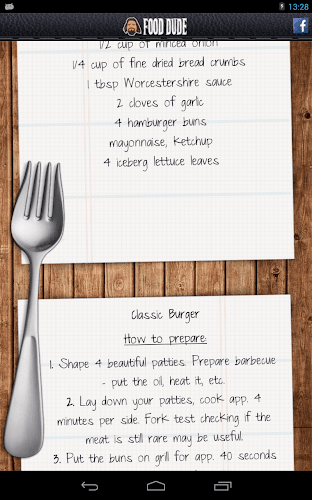 13:28
FOOD DUDE
f
1/2 cup of minced onion
1/4 cup of fine dried bread crumbs
1 tbsp Worcestershire sauce
2 cloves of garlic
4 hamburger buns
mayonnaise, ketchup
4 iceberg lettuce leaves
Classic Burger
How to prepare:
1. Shape 4 beautiful patties. Prepare barbecue
- put the oil, heat it, etc.
2. Lay down your patties, cook app. 4
minutes per side. Fork test checking if the
meat is still rare may be useful.
3. Put the buns on grill for app. 40 seconds